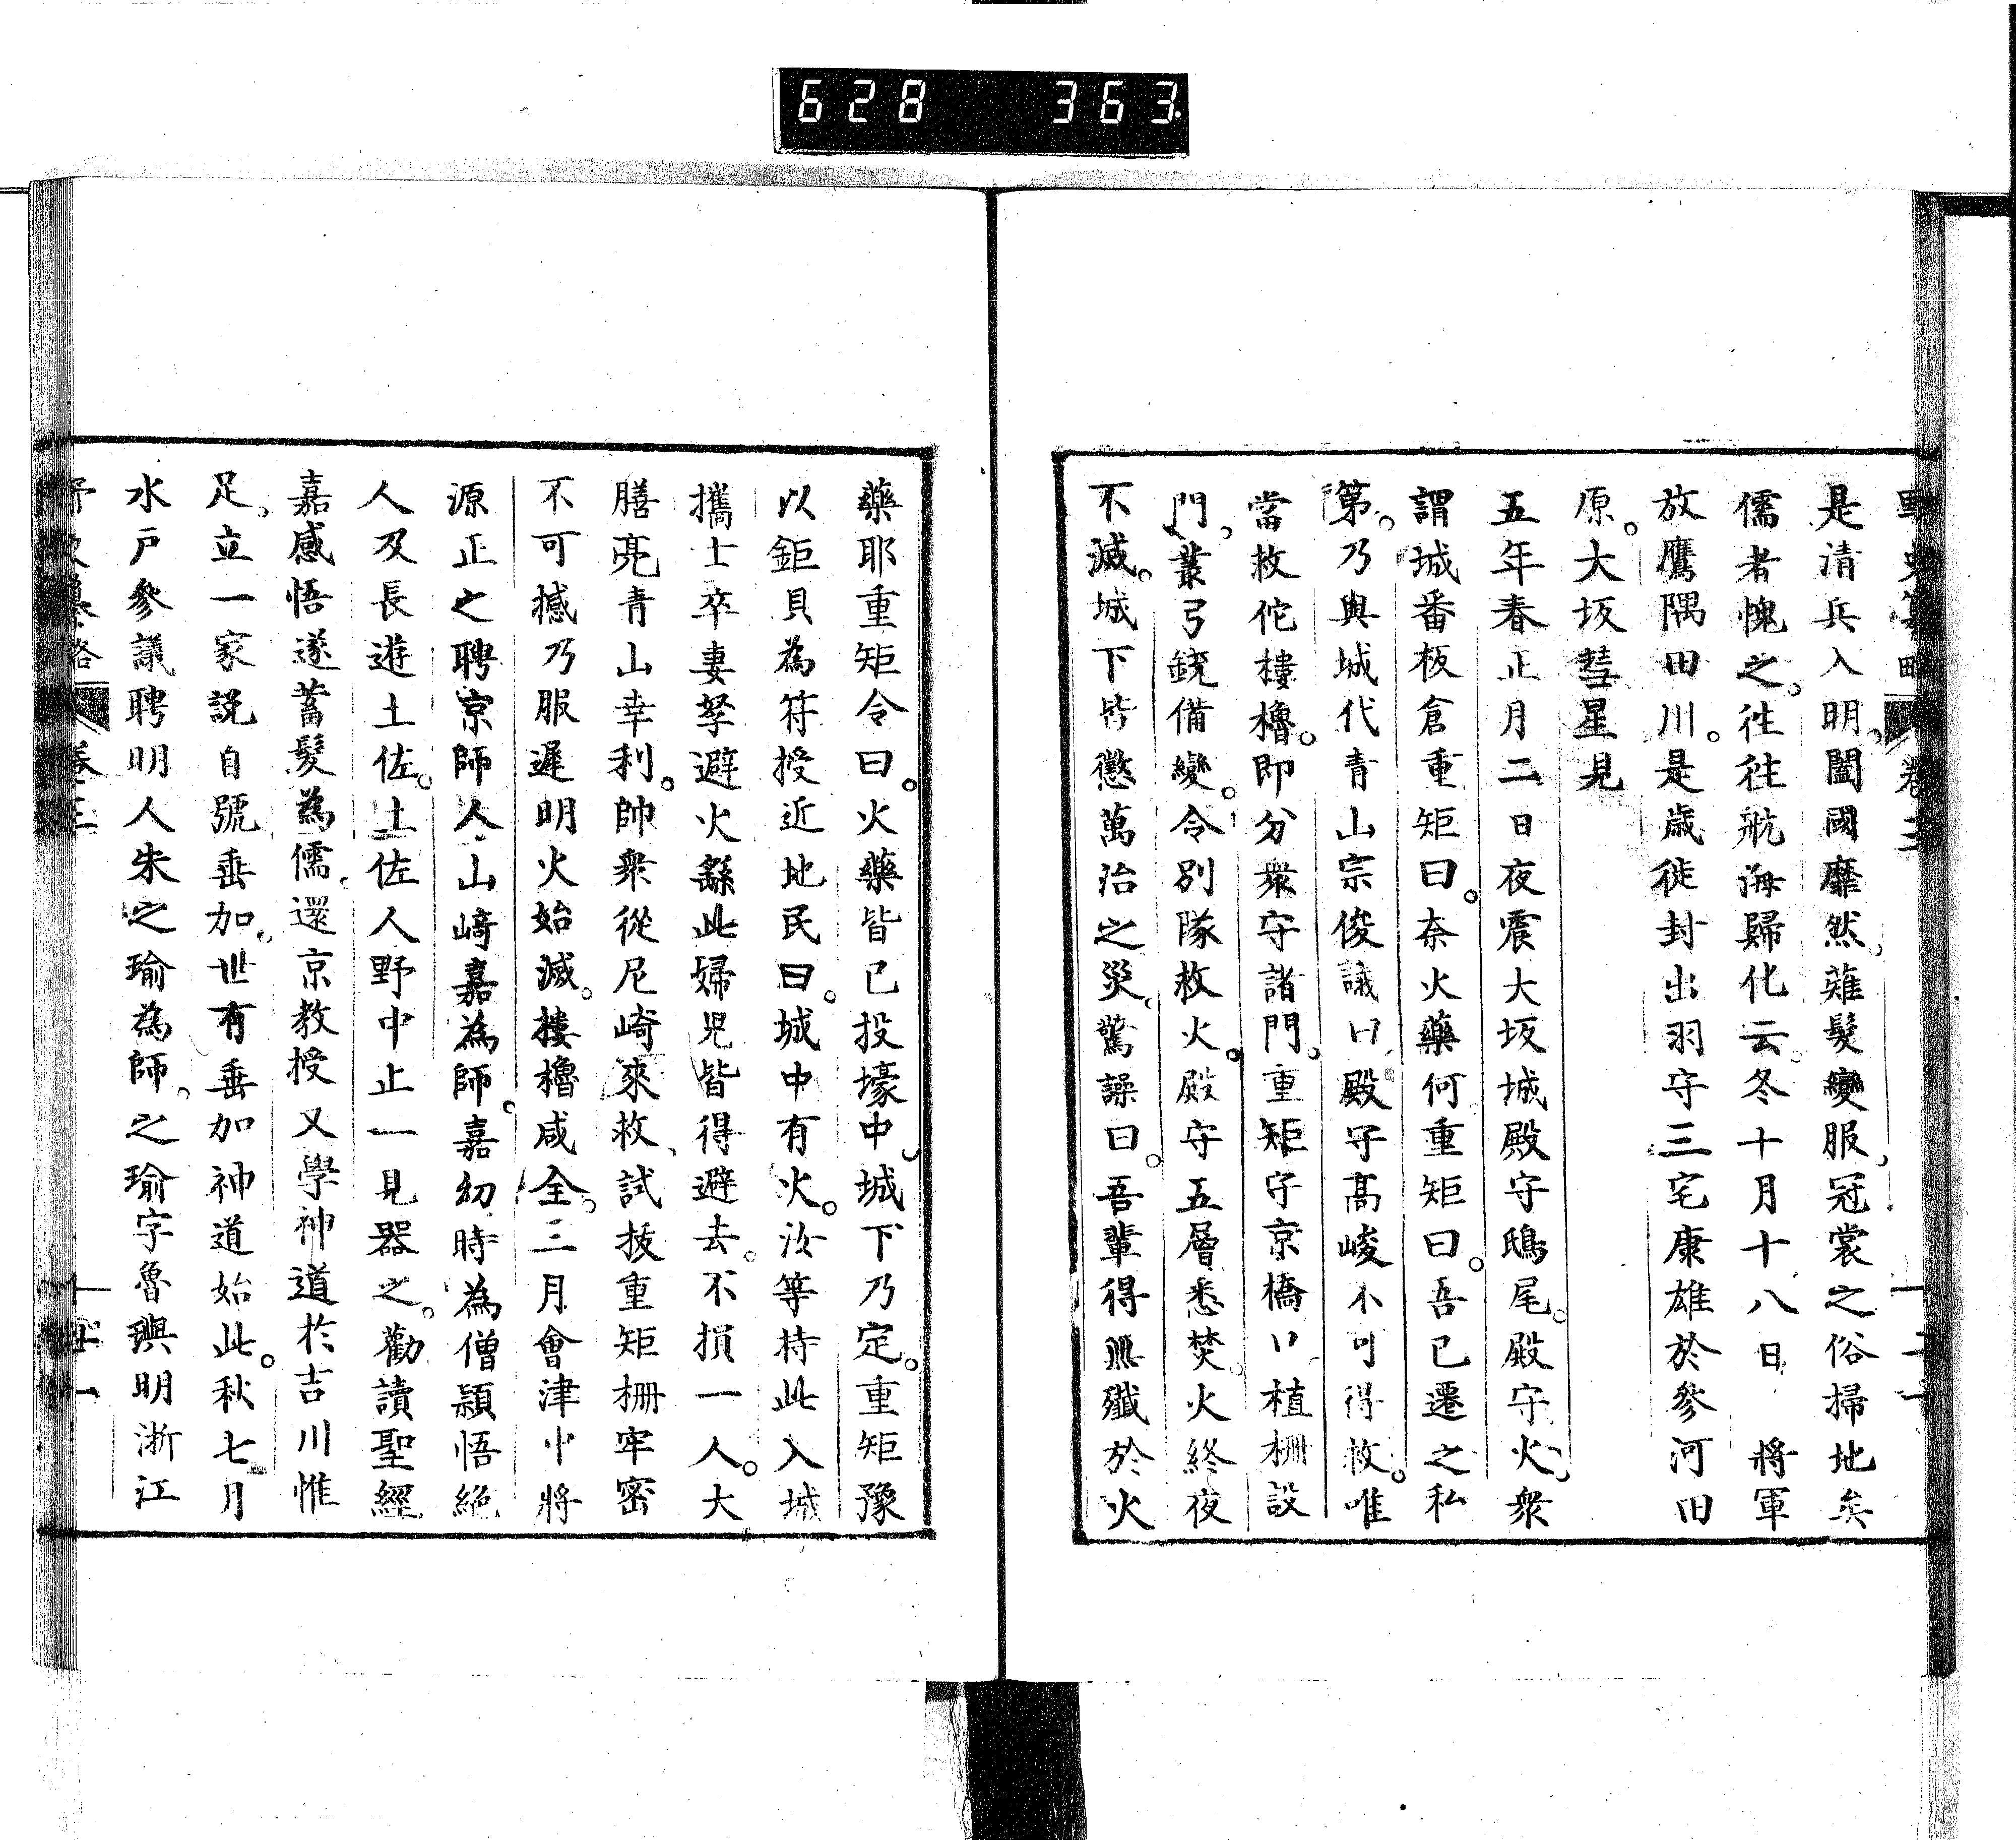 628 363
野史纂略 卷三
是清兵入明。闔國靡然。薙髮變服。冠裳之俗掃地矣
儒者愧之。往往航海歸化云。冬十月十八日 將軍
放鷹隅田川。是歳徙封出羽守三宅康雄於參河田
原。大坂彗星見
五年春正月二日夜震大坂城殿守鴟尾。殿守火。衆
謂城番板倉重矩曰。奈火藥何重矩曰。吾已遷之私
第。乃與城代青山宗俊議曰。殿守髙峻不可得救。唯
當救佗樓櫓。即分衆守諸門。重矩守京橋口植柵設
門。叢弓銃備變。令別隊救火。殿守五層悉焚。火終夜
不滅。城下皆懲萬治之災。驚譟曰。吾輩得無殲於火
藥耶重矩令曰。火藥皆已投壕中。城下乃定。重矩豫
以鉅貝為符授近地民曰。城中有火。汝等持此入城
攜士卒妻孥避火繇此婦児皆得避去。不損一人。大
膳亮青山幸利。帥衆從尼崎來救。試拔重矩柵牢密
不可撼乃服遲明火始滅。樓櫓咸全。三月會津中將
源正之聘京師人山﨑嘉為師。嘉幼時為僧頴悟絶
人及長遊土佐。土佐人野中止一見器之。勸讀聖經
嘉感悟遂蓄髮為儒。還京教授又學神道於吉川惟
足。立一家説自號垂加。世有垂加神道始此。秋七月
水戸參議聘明人朱之瑜為師。之瑜字魯璵明浙江
野史纂略 卷三